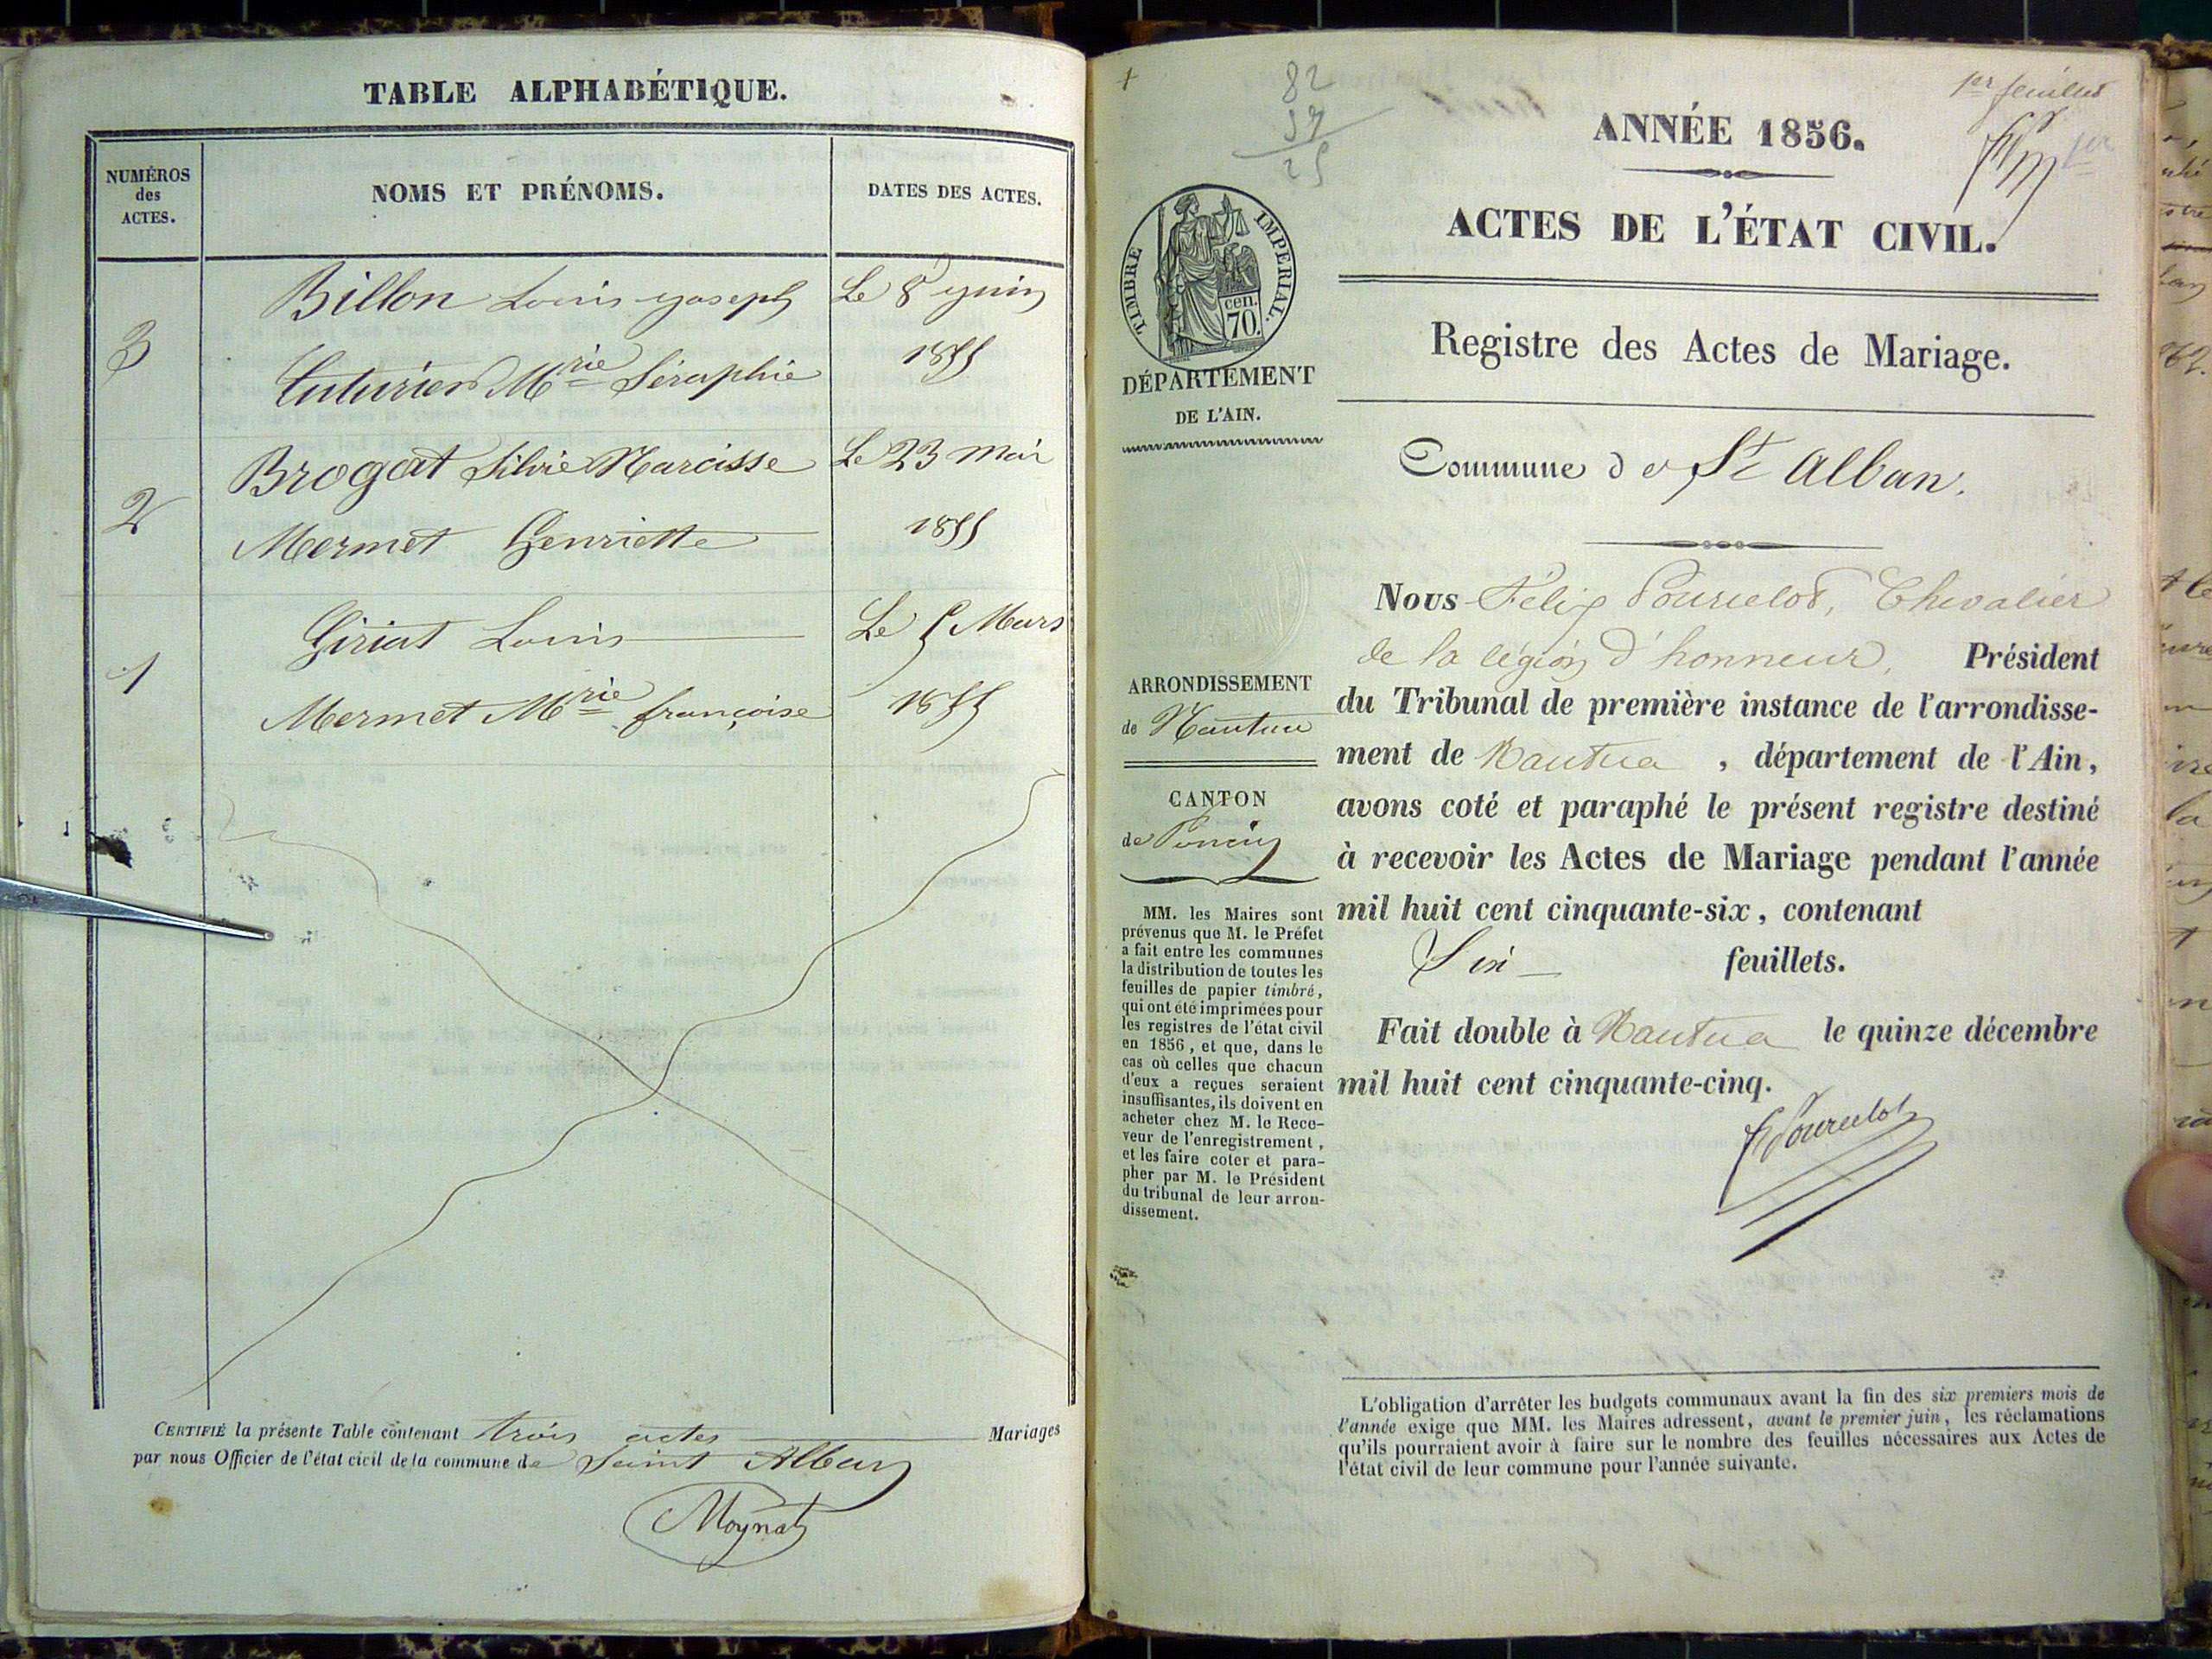 TABLE ALPHABÉTIQUE.
NUMÉROS
des
ACTES.
NOMS ET PRÉNOMS.
DATES DES ACTES.
3
Billon Louis yoseph
Le 8 yuin
Cuturier Mrie Séraphie
1855
2
Brogat Silvie Narcisse
Le 23 mai
Mermet Henriette
1855
1
Giriat Louis
Le 5 Mars
Mermet Mrie françoise
1855
CERTIFIÉ la présente Table contenant trois actes Mariages
par nous Officier de l'état civil de la commune de Saint Alban
Moynat
82
1er feuillet
ANNÉE 1856.
ACTES DE L'ÉTAT CIVIL.
TIMBRE IMPERIAL.
cen.
70.
DÉPARTEMENT
DE L'AIN.
Registre des Actes de Mariage.
Commune de St Alban.
ARRONDISSEMENT
de Nantua
CANTON
de Poncin
MM. les Maires sont
prévenus que M. le Préfet
a fait entre les communes
la distribution de toutes les
feuilles de papier timbré,
qui ont été imprimées pour
les registres de l'état civil
en 1856, et que, dans le
cas où celles que chacun
d'eux a reçues seraient
insuffisantes, ils doivent en
acheter chez M. le Rece-
veur de l'enregistrement,
et les faire coter et para-
pher par M. le Président
du tribunal de leur arron-
dissement.
Nous Félix Pourcelot, Chevalier
de la légion d'honneur, Président
du Tribunal de première instance de l'arrondisse-
ment de Nantua, département de l'Ain,
avons coté et paraphé le présent registre destiné
à recevoir les Actes de Mariage pendant l'année
mil huit cent cinquante-six, contenant
Six feuillets.
Fait double à Nantua le quinze décembre
mil huit cent cinquante-cinq.
F Pourcelot
L'obligation d'arrêter les budgets communaux avant la fin des six premiers mois de
l'année exige que MM. les Maires adressent, avant le premier juin, les réclamations
qu'ils pourraient avoir à faire sur le nombre des feuilles nécessaires aux Actes de
l'état civil de leur commune pour l'année suivante.